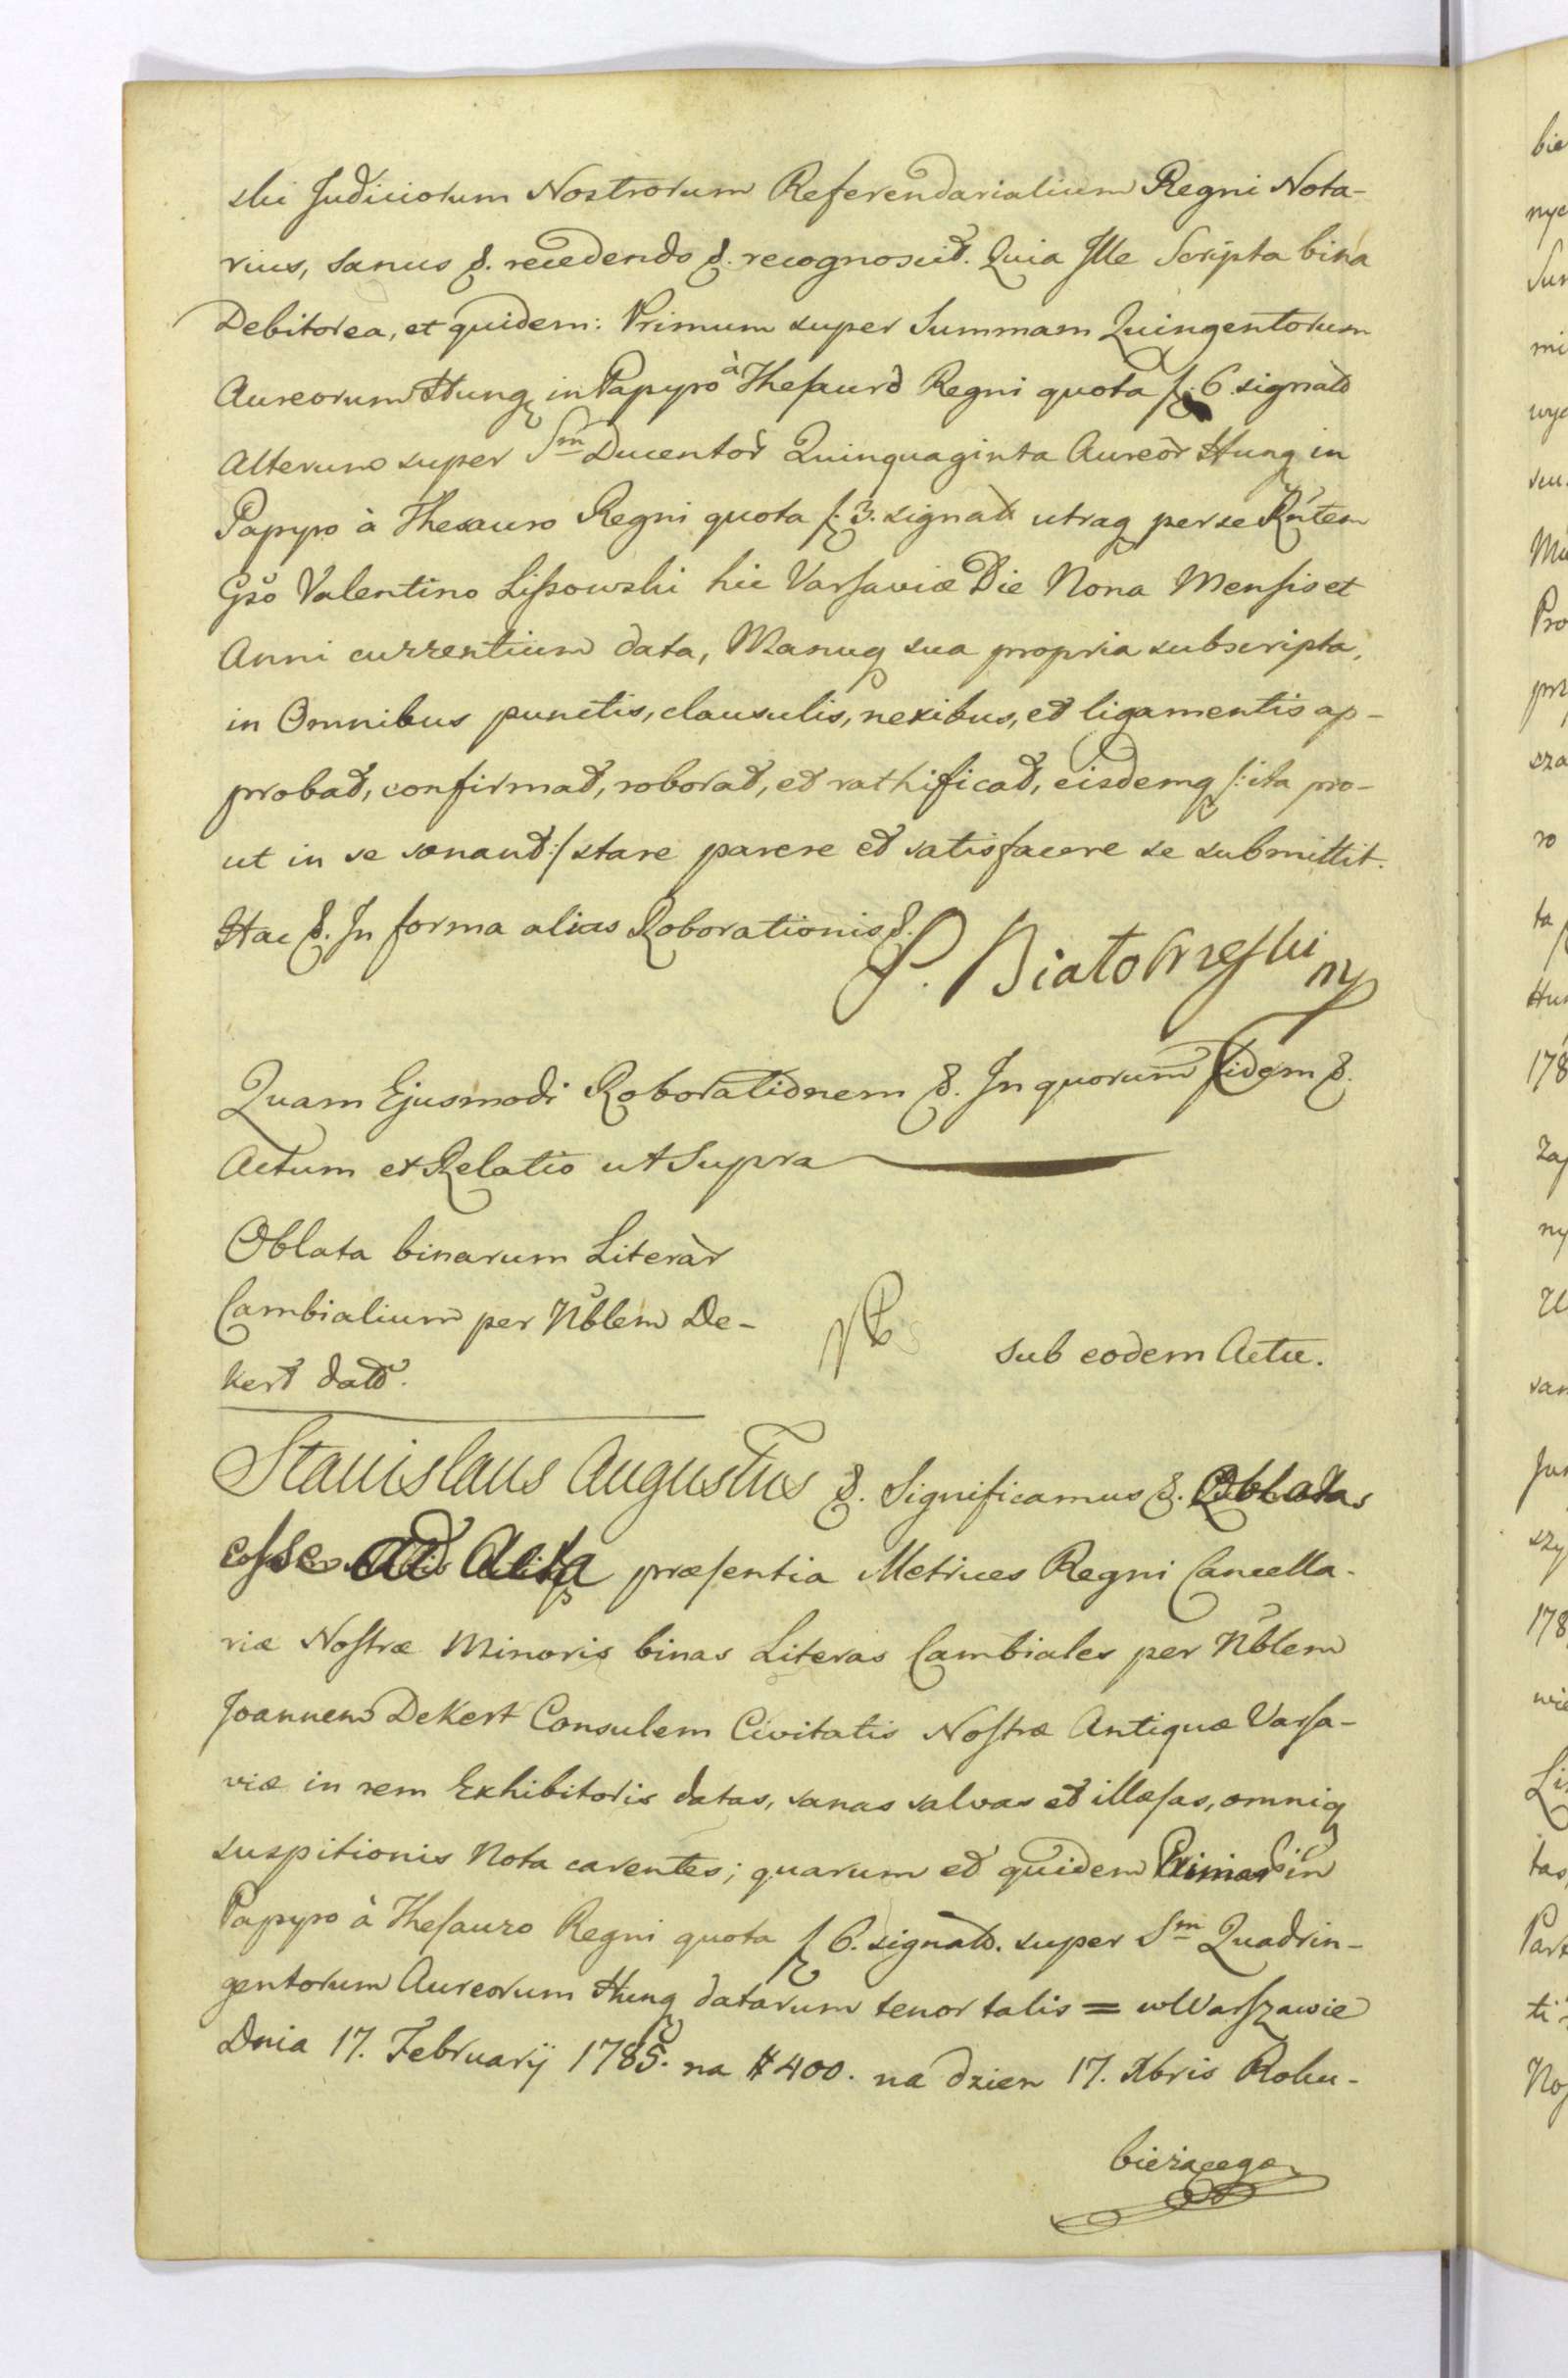 ski Judiciorum Nostrorum Referendarialium Regni Nota-
rius, sanus &. recedendo &. recognoscit. Quia Ille Scripta bina
Debitorea, et quidem: Primum super Summam Quingentorum
Aureorum Hung in Papyro à Thesauro Regni quota f. 6 signato
Alterum super Sm̄ Ducentor̀ Quinquaginta Aureor̀ Hung in
Papyro à Thesauro Regni quota f. 3. signato utraq per se Rñtem
Gso Valentino Lissowski hic Varsaviæ Die Nona Mensis et
Anni currentium data, Manuq sua propria subscripta,
in Omnibus punctis, clausulis, nexibus, et ligamentis ap-
probat, confirmat, roborat, et rathificat, eisdemq /: ita pro-
ut in se sonant :/ stare parere et satisfacere se submittit.
Hac &. In forma alias Roborationis &.
P. Białobrzeski mp
Quam Ejusmodi Roborationem &. In quorum fidem &.
Actum et Relatio ut Supra
Oblata binarum Literàr
Cambialium per Nblem De-
kert dato.
sub eodem Actu.
Stanislaus Augustus &. Significamus &. Oblatas
esse ad Acta præsentia Metrices Regni Cancella-
riæ Nostræ Minoris binas Literas Cambiales per Nblem
Joannem Dekert Consulem Civitatis Nostræ Antiquæ Varsa-
viæ in rem Exhibitoris datas, sanas salvas et illæsas, omniq
suspitionis Nota carentes; quarum et quidem in
Papyro à Thesauro Regni quota f 6. signato. super Sm̄ Quadrin-
gentorum Aureorum Hung datarum tenor talis = w Warszawie
Dnia 17. Februarij 1785. na # 400. na dzien 17. Xbris Roku-
bieżącego